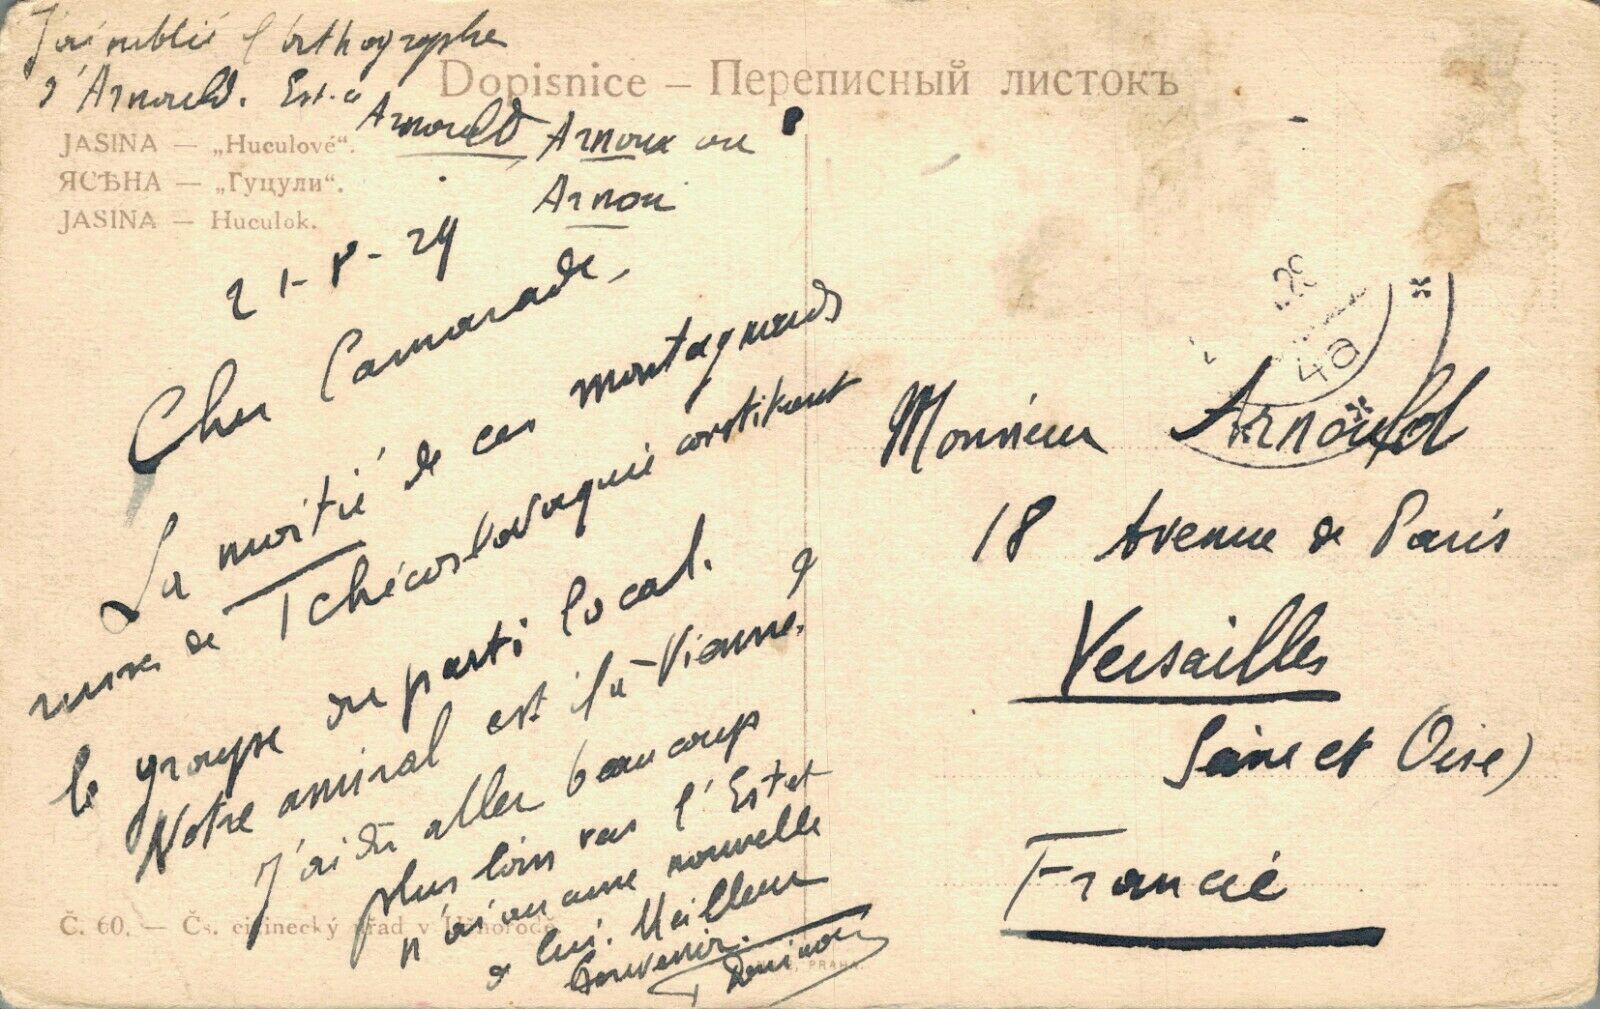 J'ai oublié l'orthographe
d'Arnould. Est-ce Arnould Arnoux ou
Arnoui ?
Dopisnice — Переписный листокъ
JASINA — „Huculové“.
ЯСѢНА — „Гуцули“.
JASINA — Huculok.
21-8-29
Cher Camarade,
La moitié de ces montagnards
russes de Tchécoslovaquie constituent
le groupe du parti local.
Notre amiral est là-Vienne ?
J'ai dû aller beaucoup
plus loin vers l'Est et
n'ai aucune nouvelle
de lui. Meilleur
Souvenir.
Č. 60. — Čs. cizinecký úřad v Užhorodě.
PRAHA.
29
4a
Monsieur Arnould
18 Avenue de Paris
Versailles
Seine et Oise)
France